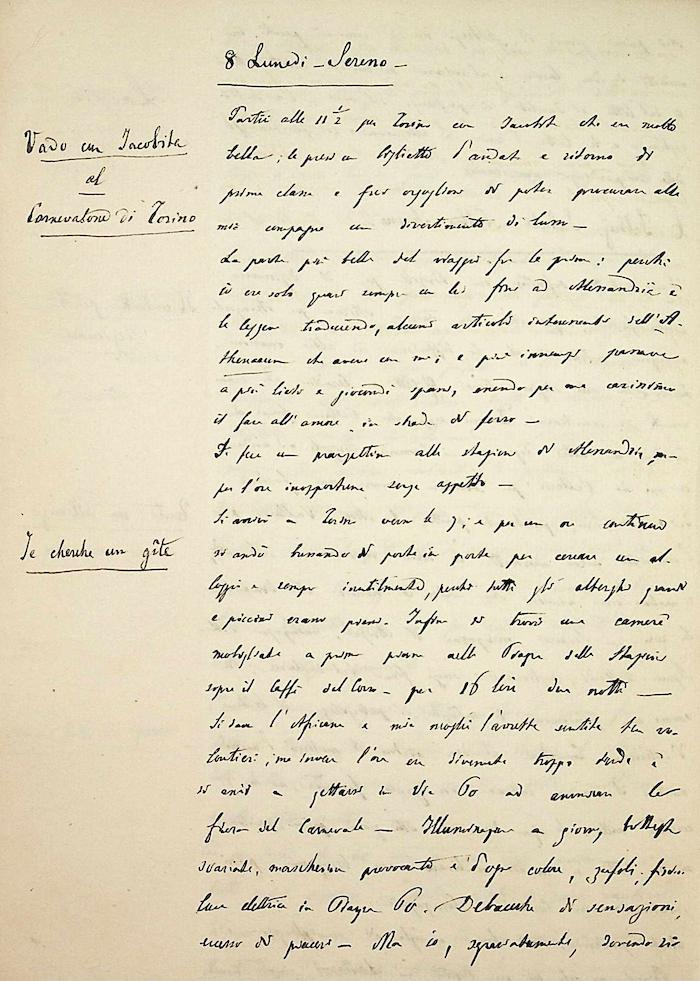 8 Lunedì – Sereno –
Vado con Jacobita
al
Carnevalone di Torino
Partii alle 11 1/2 per Torino con Jacobita che era molto
bella; le presi un biglietto d'andata e ritorno di
prima classe e fui orgoglioso di poter procurare alla
mia compagna un divertimento di lusso –
La parte più bella del viaggio fu la prima: perchè
io ero solo quasi sempre con lei fino ad Alessandria e
le leggeva traducendo, alcuni articoli interessanti dell'A-
thenaeum che aveva con me; e più innanzi passava
a più lieto e giocondi spassi, essendo per me carissimo
il fare all'amore in strada di ferro –
Si fece un pranzettino alla stazione di Alessandria, ma
per l'ora inopportuna senza appetito –
Je cherche un gîte
Si arrivò a Torino verso le 7; e per un ora continua
si andò bussando di porta in porta per cercare un al-
loggio e sempre inutilmente, perchè tutti gli alberghi grandi
e piccini erano pieni. Infine si trovò una camera
mobigliata a primo piano nella Piazza della Stazione
sopra il Caffè del Corso – per 16 lire due notti –
Si dava l'Africana e mia moglie l'avrebbe sentita ben vo-
lontieri; ma invece l'ora era divenuta troppo tarda e
si andò a gettarsi in Via Po ad ammirare la
fiera del Carnevale – Illuminazione a giorno, botteghe
svariate, mascherine provocanti e d'ogni colore, zufoli, fischi
luce elettrica in Piazza Po. Debauche di sensazioni,
eccesso di piaceri – Ma io, sgraziatamente, dovendo